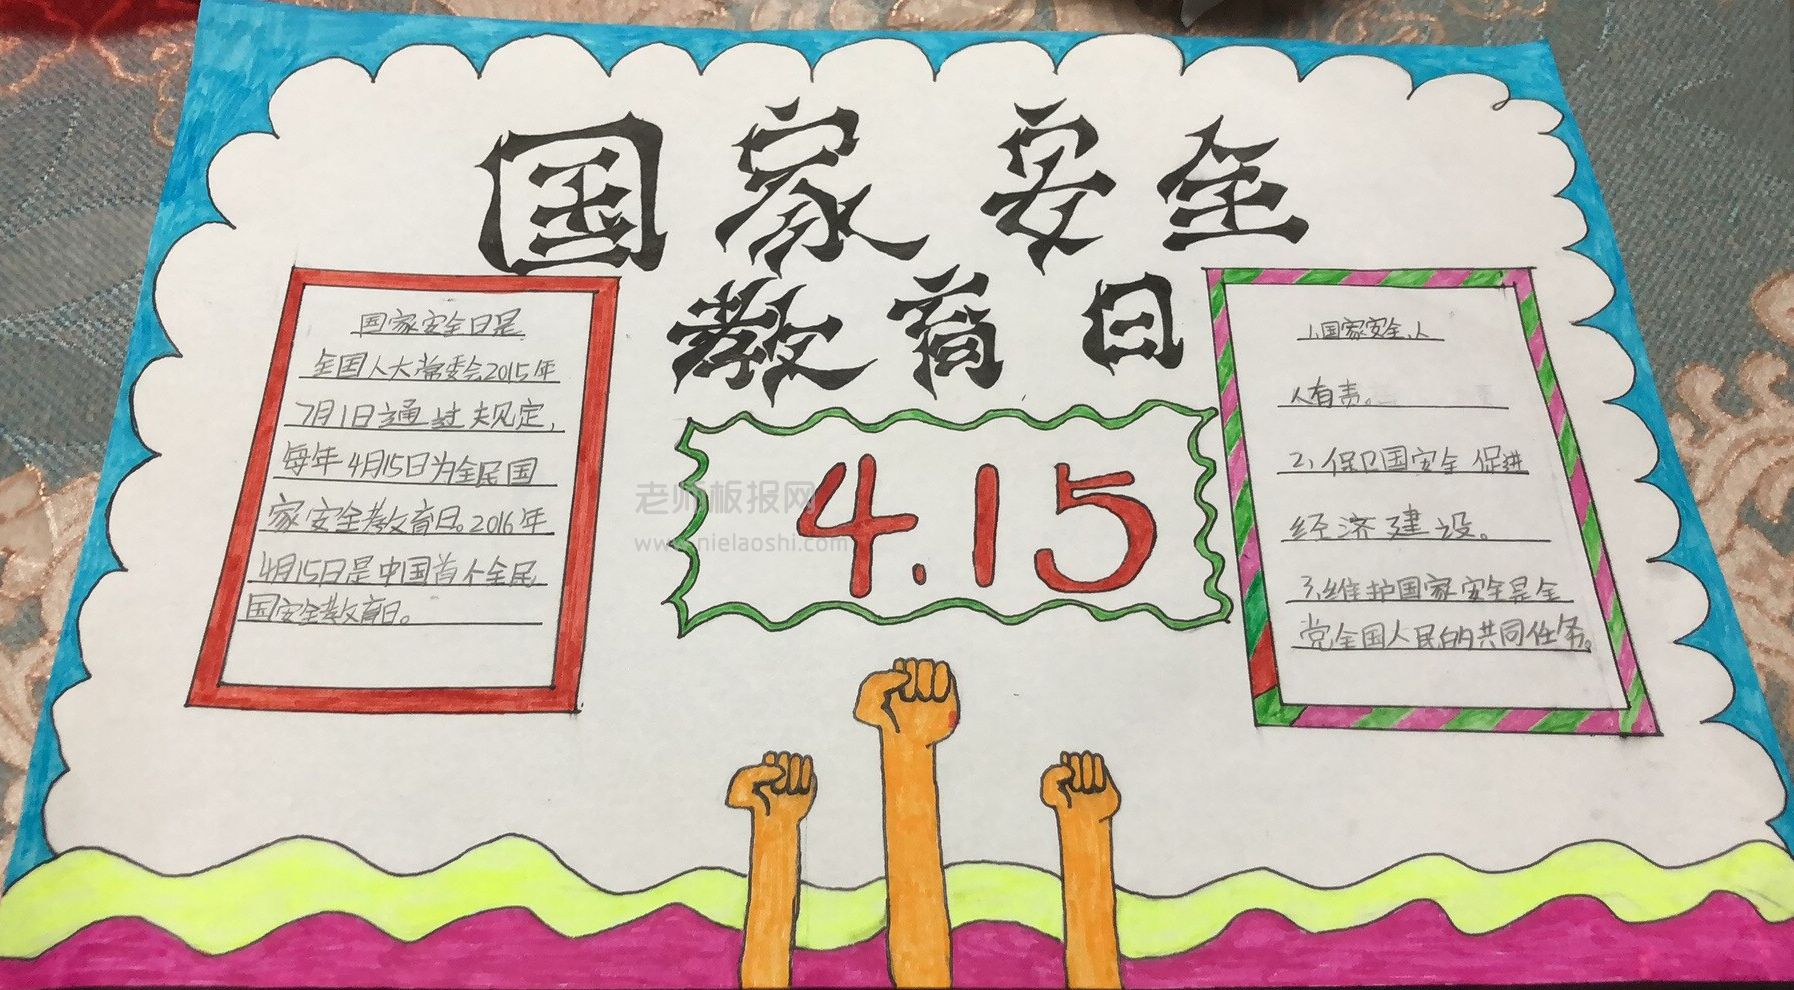 国家安全
教育日
国家安全日是
全国人大常委会2015年
7月1日通过决规定，
每年4月15日为全民国
家安全教育日。2016年
4月15日是中国首个全民
国安全教育日。
4.15
1、国家安全、人
人有责。
2、保卫国安全 促进
经济建设。
3、维护国家安全是全
党全国人民的共同任务。
老师板报网
www.nielaoshi.com